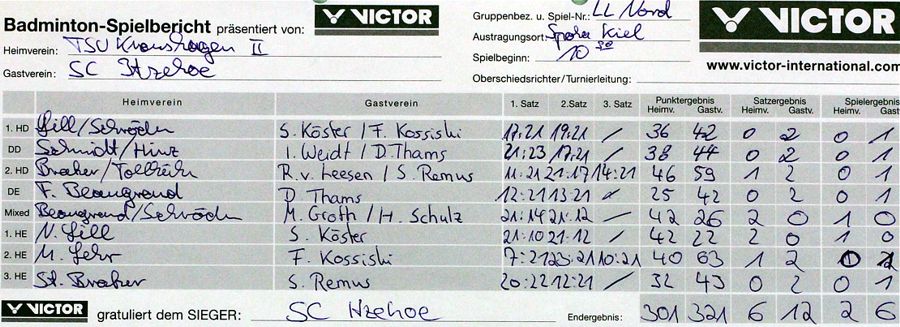 Badminton-Spielbericht präsentiert von: VICTOR
Gruppenbez. u. Spiel-Nr.: LL Nord
VICTOR
Heimverein: TSV Kronshagen II
Austragungsort: Spoha Kiel
Gastverein: SC Itzehoe
Spielbeginn: 10 00
Oberschiedsrichter/Turnierleitung:
www.victor-international.com
Heimverein Gastverein 1. Satz 2.Satz 3. Satz Punktergebnis Satzergebnis Spielergebnis
Heimv. Gastv. Heimv. Gastv. Heimv. Gast
1. HD Sill/Schröder S. Köster / F. Kossiski 17:21 19:21 / 36 42 0 2 0 1
DD Schmidt/Hinz I. Weidt / D. Thams 21:23 17:21 / 38 44 0 2 0 1
2. HD R.v. Leesen / S. Remus 11:21 21:17 14:21 46 59 1 2 0 1
DE F. Beaugrand D. Thams 12:21 13:21 / 25 42 0 2 0 1
Mixed Beaugrand/Schröder M. Groth / H. Schulz 21:14 21:12 / 42 26 2 0 1 0
1. HE N. Sill S. Köster 21:10 21:12 / 42 22 2 0 1 0
2. HE M. Lehr F. Kossiski 7:21 23:21 10:21 40 63 1 2 0 1
3. HE St. Braker S. Remus 20:22 12:21 / 32 43 0 2 0 1
VICTOR gratuliert dem SIEGER: SC Itzehoe Endergebnis: 301 321 6 12 2 6